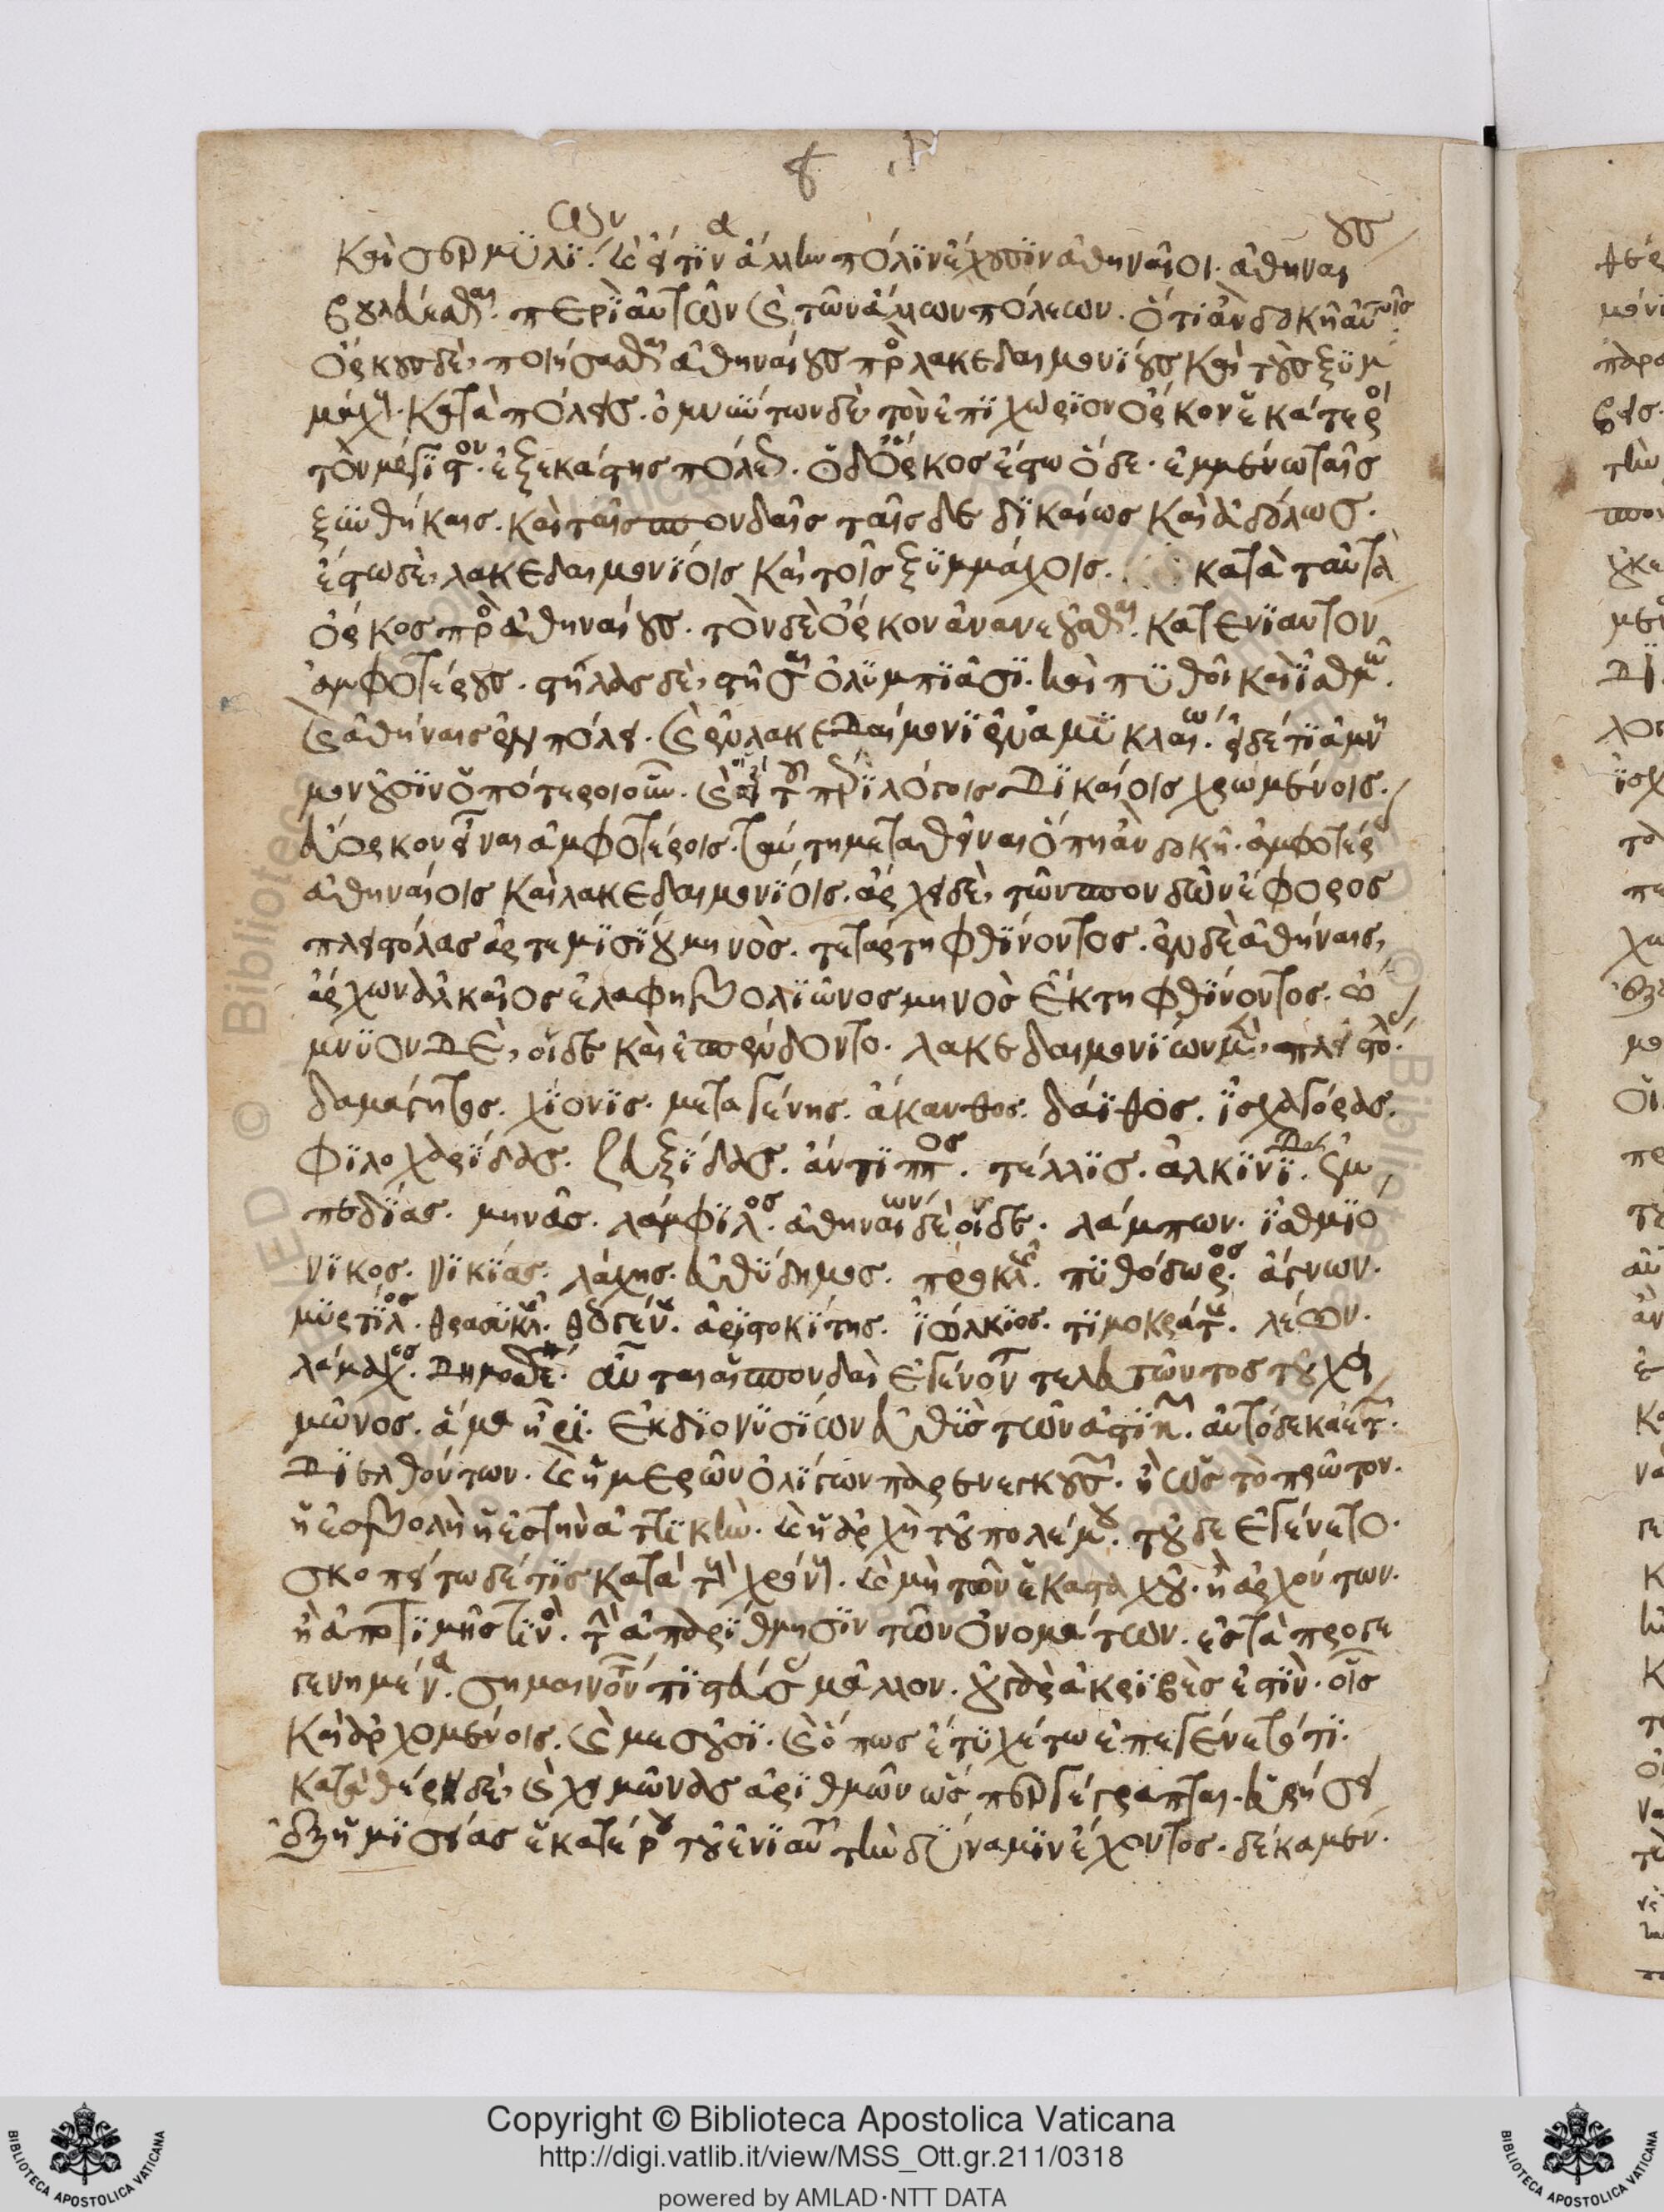 καὶ σερμυλίων. καὶ εἴ τινα ἄλλην πόλιν ἔχουσιν ἀθηναῖοι. ἀθηναίους
βουλεύεσθαι περὶ αὐτῶν καὶ τῶν ἄλλων πόλεων. ὅτι ἂν δοκῇ αὐτοῖς.
ὅρκους δὲ, ποιήσασθαι ἀθηναίους πρὸς λακεδαιμονίους καὶ τοὺς ξυμ
μάχους. κατὰ πόλεις. ὀμνύντων δὲ τὸν ἐπιχώριον ὅρκον ἑκάτεροι
τὸν μέγιστον. ἐξ ἑκάστης πόλεως. ὁ δ' ὅρκος ἔστω ὅδε. ἐμμενῶ ταῖς
ξυνθήκαις. καὶ ταῖς σπονδαῖς ταῖς δε δικαίως καὶ ἀδόλως.
ἔστω δὲ, λακεδαιμονίοις καὶ τοῖς ξυμμάχοις. κατὰ ταῦτὰ
ὅρκος πρὸς ἀθηναίους. τὸν δὲ ὅρκον ἀνανεοῦσθαι κατενιαυτὸν
ἀμφοτέρους. στήλας δὲ, στῆσαι ὀλυμπίασι. καὶ πυθοῖ καὶ ἰσθμῶ.
καὶ ἀθήναις ἐν πόλει. καὶ ἐν λακεδαίμονι ἐν ἀμυκλαίω. εἰ δέ τι ἀμνη
μονοῦσιν ὁπότεροι οὖν. καὶ ὅτου πέρι λόγοις δικαίοις χρωμένοις.
εὔορκον εἶναι ἀμφοτέροις. ταύτη μεταθεῖναι ὅπη ἂν δοκῇ. ἀμφοτέροις
ἀθηναίοις καὶ λακεδαιμονίοις. ἄρχει δὲ, τῶν σπονδῶν ἔφορος
πλειστόλας ἀρτεμισίου μηνὸς. τετάρτη φθίνοντος. ἐν δὲ ἀθήναις,
ἄρχων ἀλκαῖος ἐλαφηβολιῶνος μηνὸς ἕκτη φθίνοντος. ὤ
μνυον δὲ, οἵδε καὶ ἐσπένδοντο. λακεδαιμονίων μὲν, πλειστόλας.
δαμάγητος. χίονις. μεταγένης. ἄκανθος. δάϊθος. ἰσχαγόρας.
φιλοχαρίδας. ζευξίδας. ἄντιππος. τέλλις. ἀλκινίδας. ἐμ
πεδίας. μηνᾶς. λάμφιλος. ἀθηναίων δὲ οἵδε. λάμπων. ἰσθμιο
νικος. νικίας. λάχης. εὐθύδημος. προκλῆς. πυθόδωρος. ἅγνων.
μυρτίλος. θρασυκλῆς. θεογένης. ἀριστοκίτης. ἰώλκιος. τιμοκράτης. λέων.
λάμαχος. δημοσθένης. αὗται αἱ σπονδαὶ ἐγένοντο τελευτῶντος τοῦ χει
μῶνος. ἅμα ἦρι. ἐκ διονυσίων εὐθὺς τῶν ἀστικῶν. αὐτόδεκα ἐτῶν.
διελθόντων. καὶ ἡμερῶν ὀλίγων παρενεγκουσῶν. ἢ ὡς τὸ πρῶτον.
ἡ ἐσβολὴ ἡ ἐς τὴν ἀττικὴν. καὶ ἡ ἀρχὴ τοῦ πολέμου. τοῦδε ἐγένετο.
σκοπείτω δέ τις κατὰ τοὺς χρόνους. καὶ μὴ τῶν ἑκασταχοῦ. ἢ ἀρχόντων.
ἢ ἀπὸ τιμῆς τινὸς. τὴν ἀπαρίθμησιν τῶν ὀνομάτων. ἐς τὰ προγε
γενημένα. σημαινόντων πιστεύσας μᾶλλον. οὐ γὰρ ἀκριβὲς ἐστὶν. οἷς
καὶ ἀρχομένοις. καὶ μεσοῦσι. καὶ ὅπως ἔτυχέ τω ἐπεγένετό τι.
κατὰ θέρη δὲ, καὶ χειμῶνας ἀριθμῶν ὥσπερ γέγραπται. εὑρήσει
ἐξ ἡμισείας ἑκατέρου τοῦ ἐνιαυτοῦ τὴν δύναμιν ἔχοντος. δέκα μὲν.
Copyright © Biblioteca Apostolica Vaticana
http://digi.vatlib.it/view/MSS_Ott.gr.211/0318
powered by AMLAD·NTT DATA